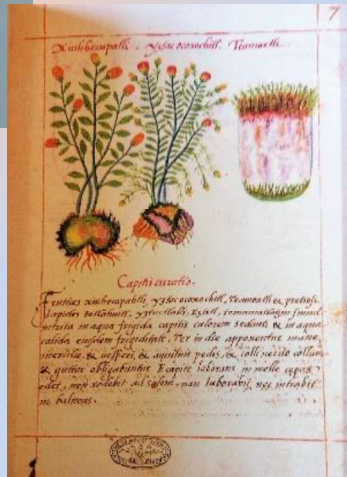 7
Xiuhhecapahtli. Yztac ocoxochitl. Teamoxtli.
Capitis curatio.
Frutices xiuhhecapahtli, yztac ocoxochitl, teamoxtli & preciosi
lapides tetlahuitl, yztac tlalli, eztetl, temamatlatzin simul
intrita in aqua frigida capitis calorem sedant & in aqua
calida eiusdem frigiditatē. Ter in die apponentur mane,
meridie & uesperi, & pedis, & colli neruo collum
& guttur obligabuntur. E capite laborans in melle cepas
edet, non sedebit ad solem, non laborabit, nec intrabit
in balneas.